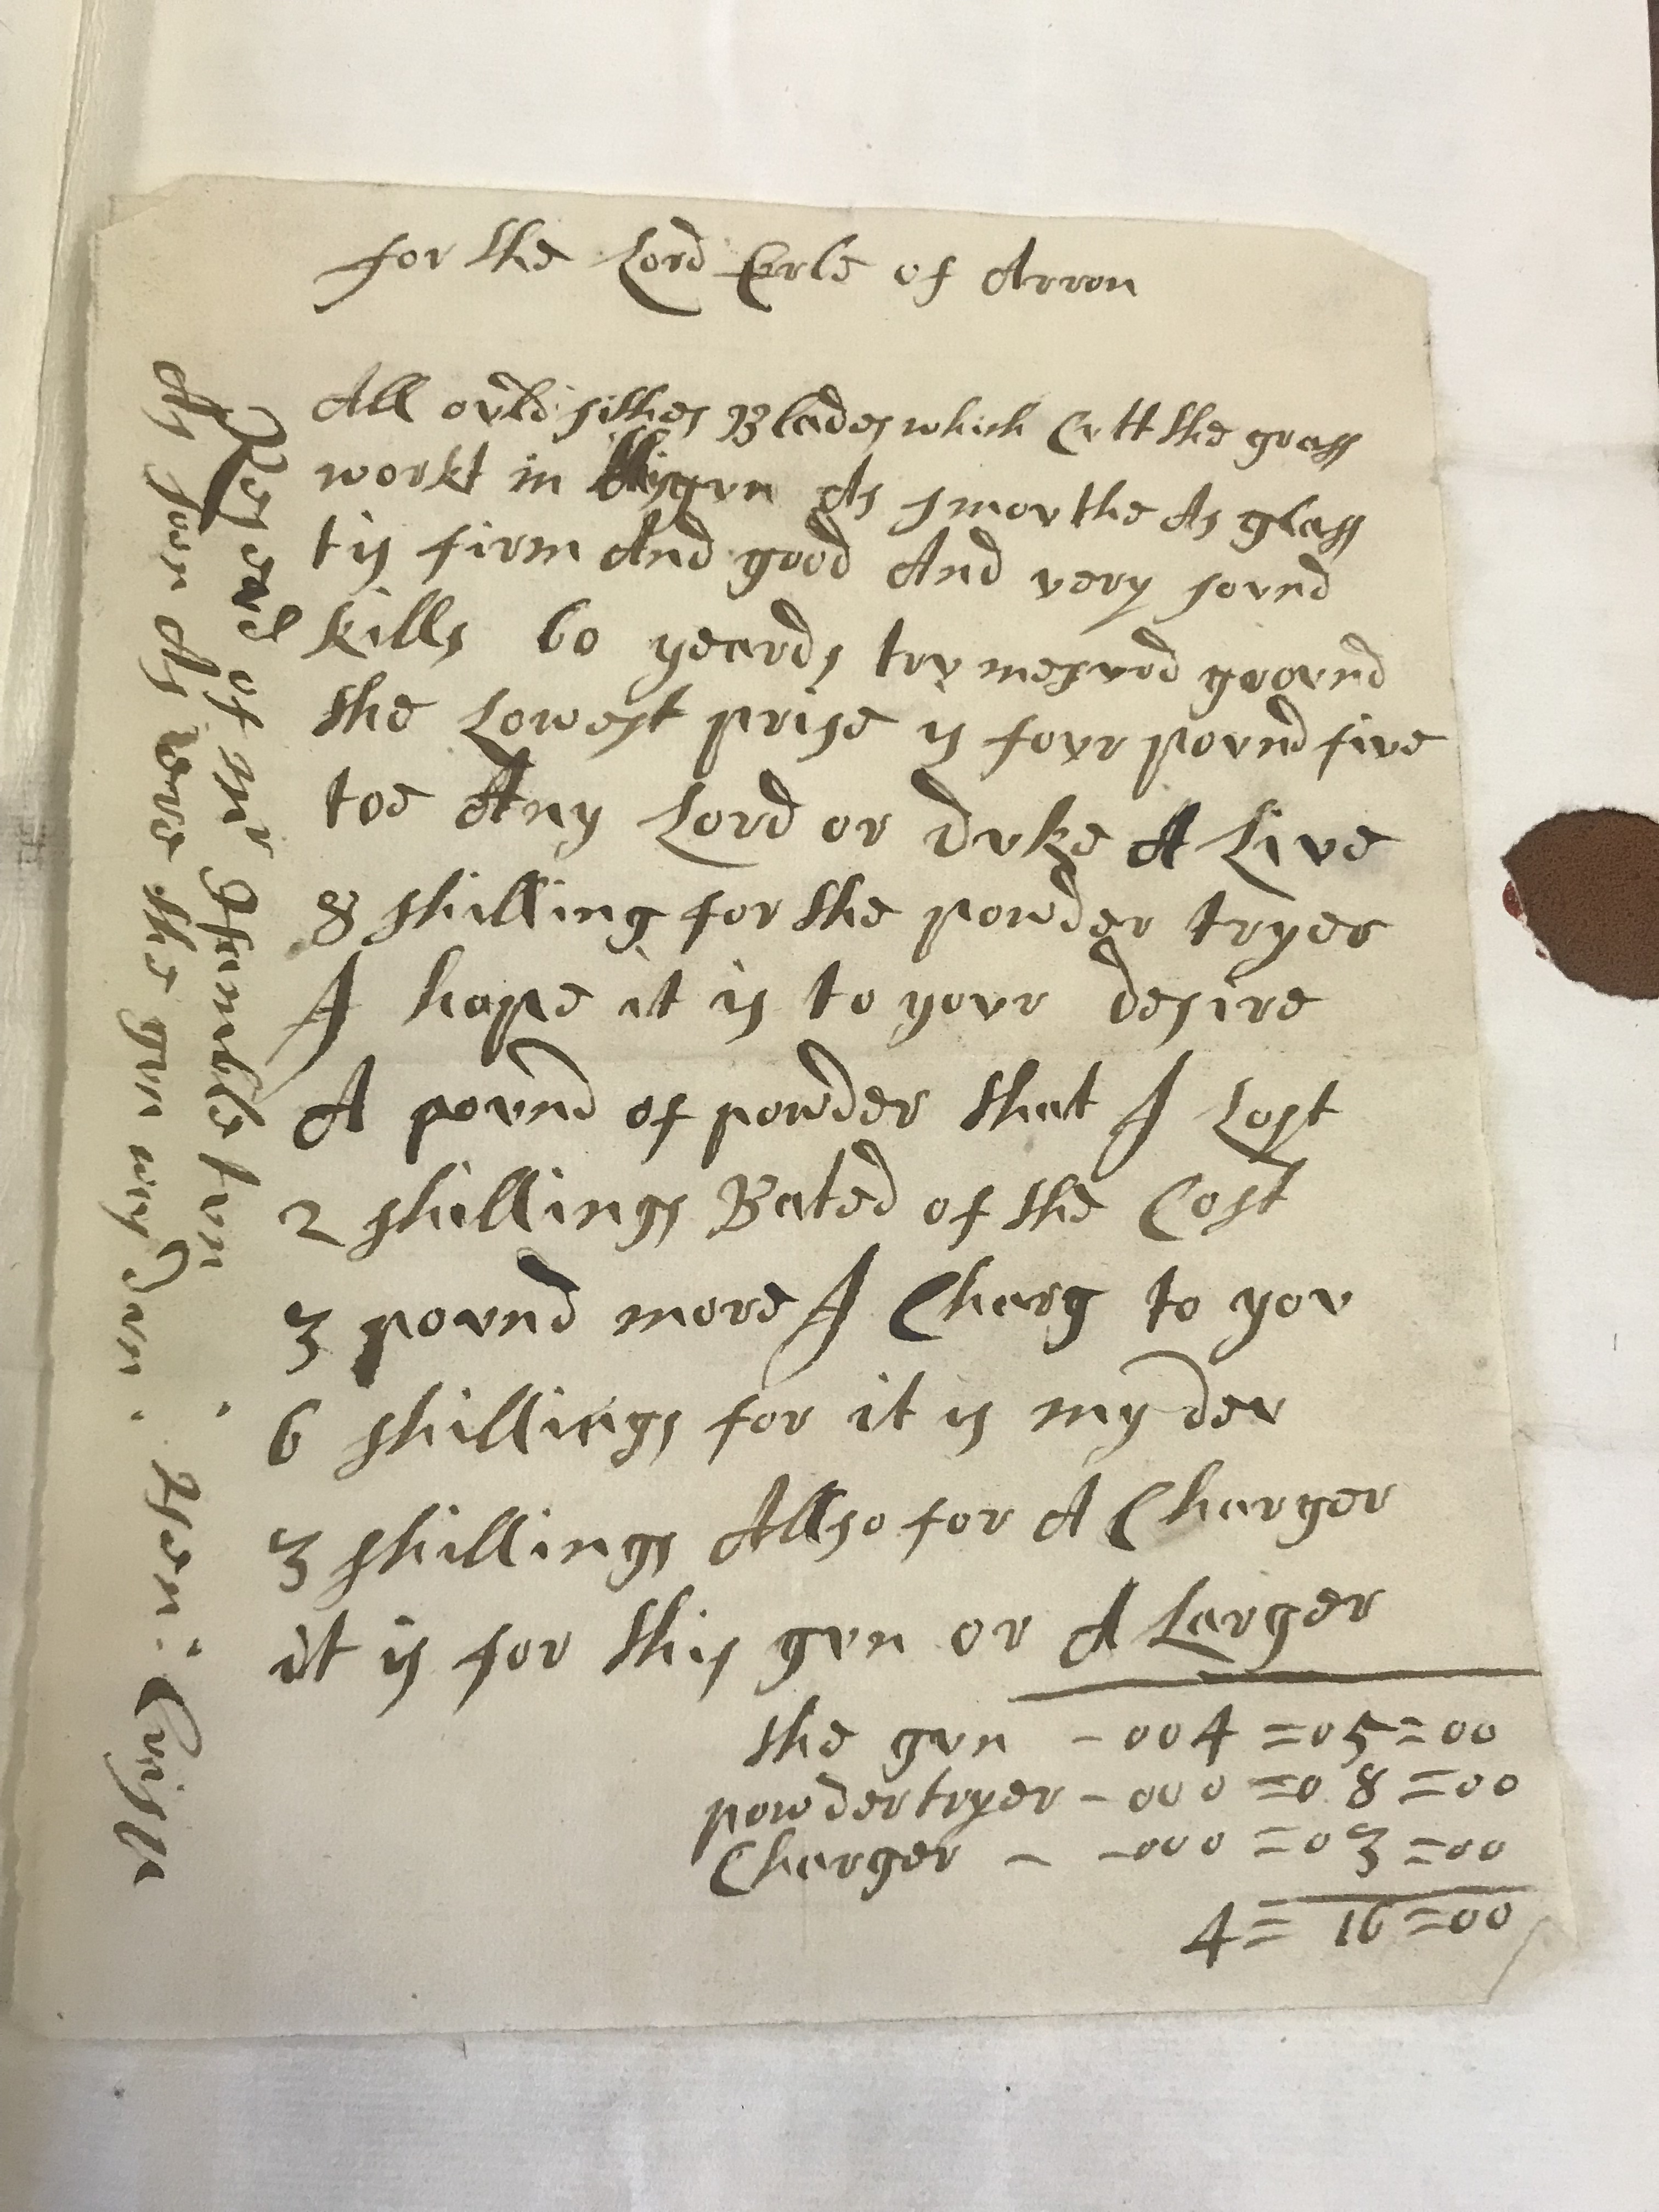 for the Lord Erle of Arron
All ould sithes Blades which Cutt the grass
workt in this gun As smouthe As glass
tis firm And good And very sound
kills 60 yeards tru mesurd ground
the Lowest prise is four pound five
toe Any Lord or duke A Live
8 shilling for the powder tryer
I hope it is to your desire
A pound of powder that I Lost
2 shillings Bated of the Cost
3 pound more I Charg to you
6 shillings for it is my deu
3 shillings Allso for A Charger
it is for this gun or A Larger
the gun - 004 = 05 = 00
powder tryer - 000 = 08 = 00
Charger - - 000 = 03 = 00
4 = 16 = 00
Reseved of mr Humble sun
As soon As ever the gun wey Dun
Hen: Crisp